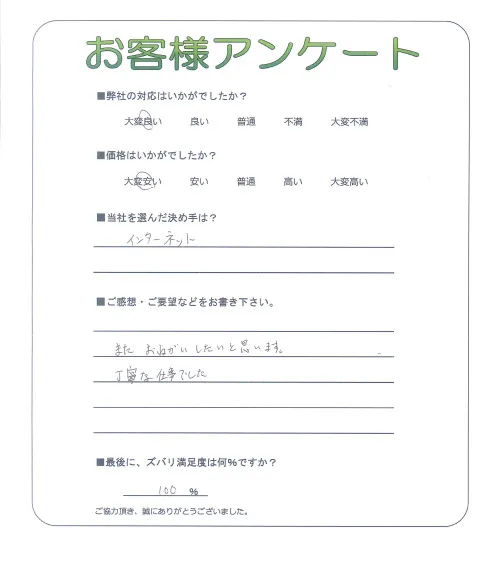 お客様アンケート
■弊社の対応はいかがでしたか？
大変良い 良い 普通 不満 大変不満
■価格はいかがでしたか？
大変安い 安い 普通 高い 大変高い
■当社を選んだ決め手は？
インターネット
■ご感想・ご要望などをお書き下さい。
また おねがいしたいと思います。
丁寧な仕事でした
■最後に、ズバリ満足度は何%ですか？
100 %
ご協力頂き、誠にありがとうございました。